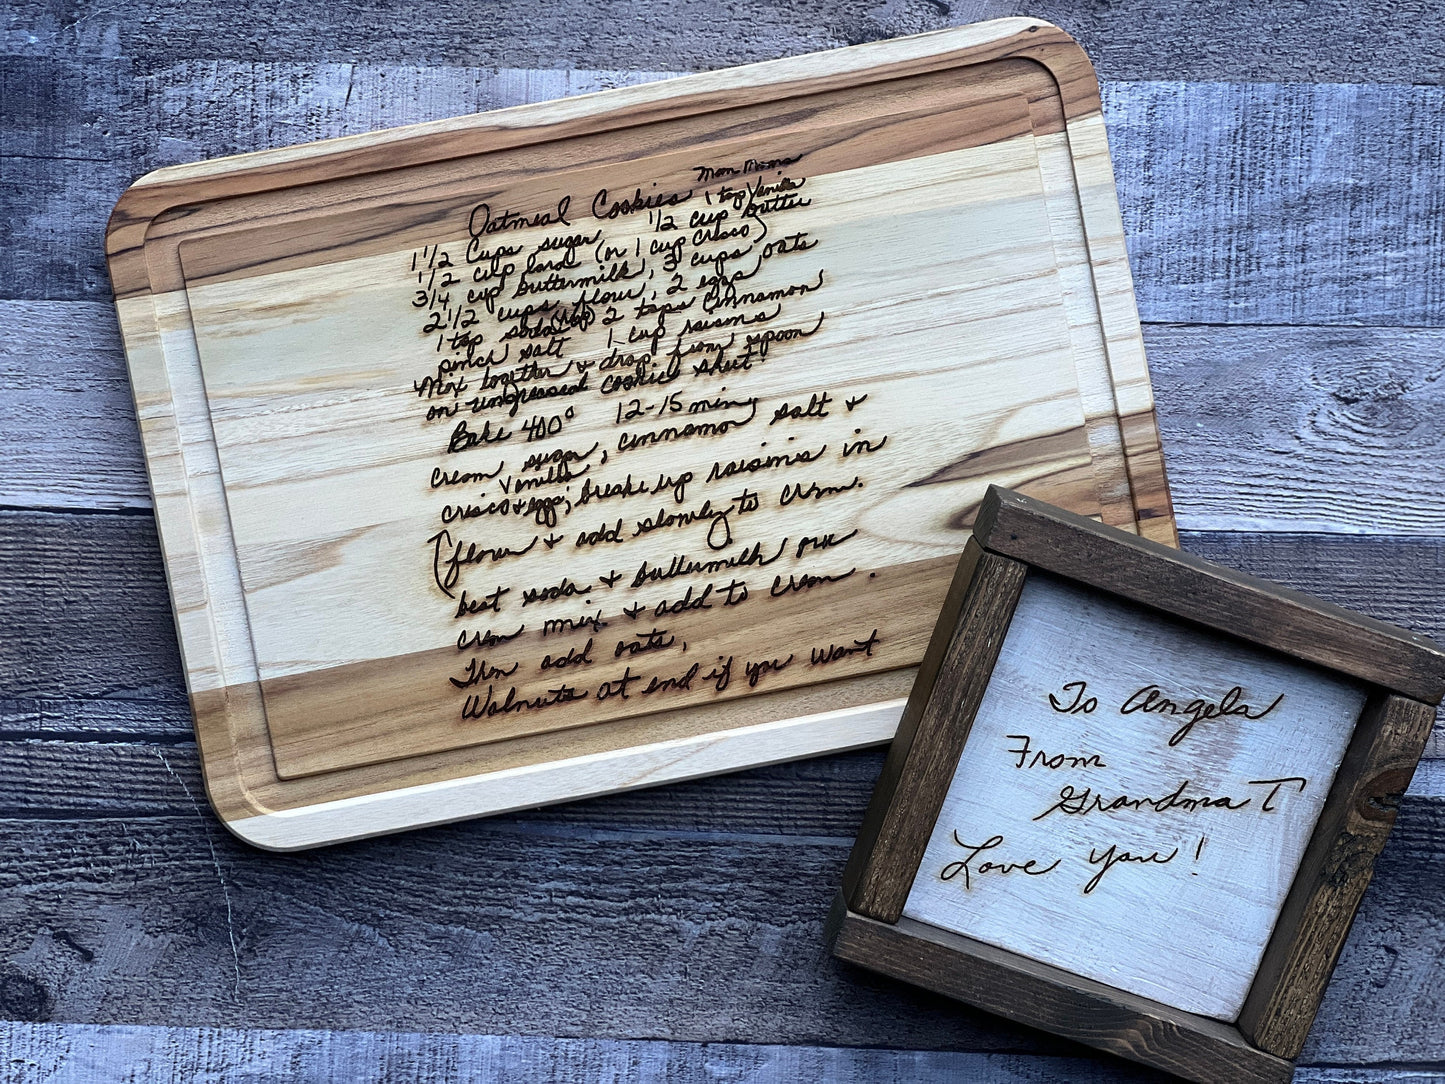 Oatmeal Cookies Mom Moms
1 tsp Vanilla
1 1/2 Cups sugar 1/2 cup butter
1/2 cup lard (or 1 cup crisco)
3/4 cup buttermilk, 3 cups oats
2 1/2 cups flour, 2 eggs
1 tsp soda 2 tsps cinnamon
pinch salt 1 cup raisins
Mix together + drop from spoon
on ungreased cookie sheet!
Bake 400° 12-15 min
cream sugar, cinnamon salt +
Vanilla
crisco + eggs; break up raisins in
(flour + add slowly to crem.
best soda + buttermilk
crem mix. + add to crem.
Then add oats,
Walnuts at end if you want
To Angela
From
Grandma T
Love you!